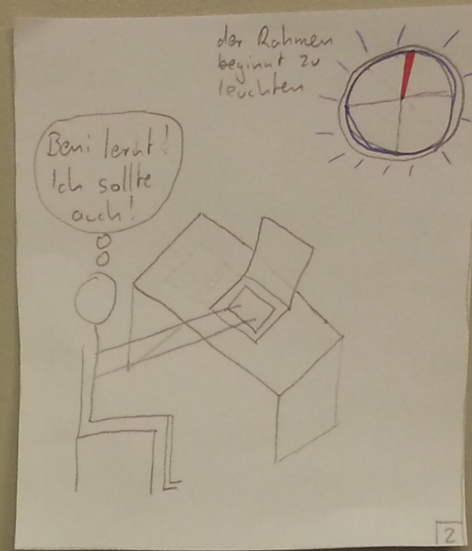 der Rahmen
beginnt zu
leuchten
Beni lernt!
Ich sollte
auch!
2